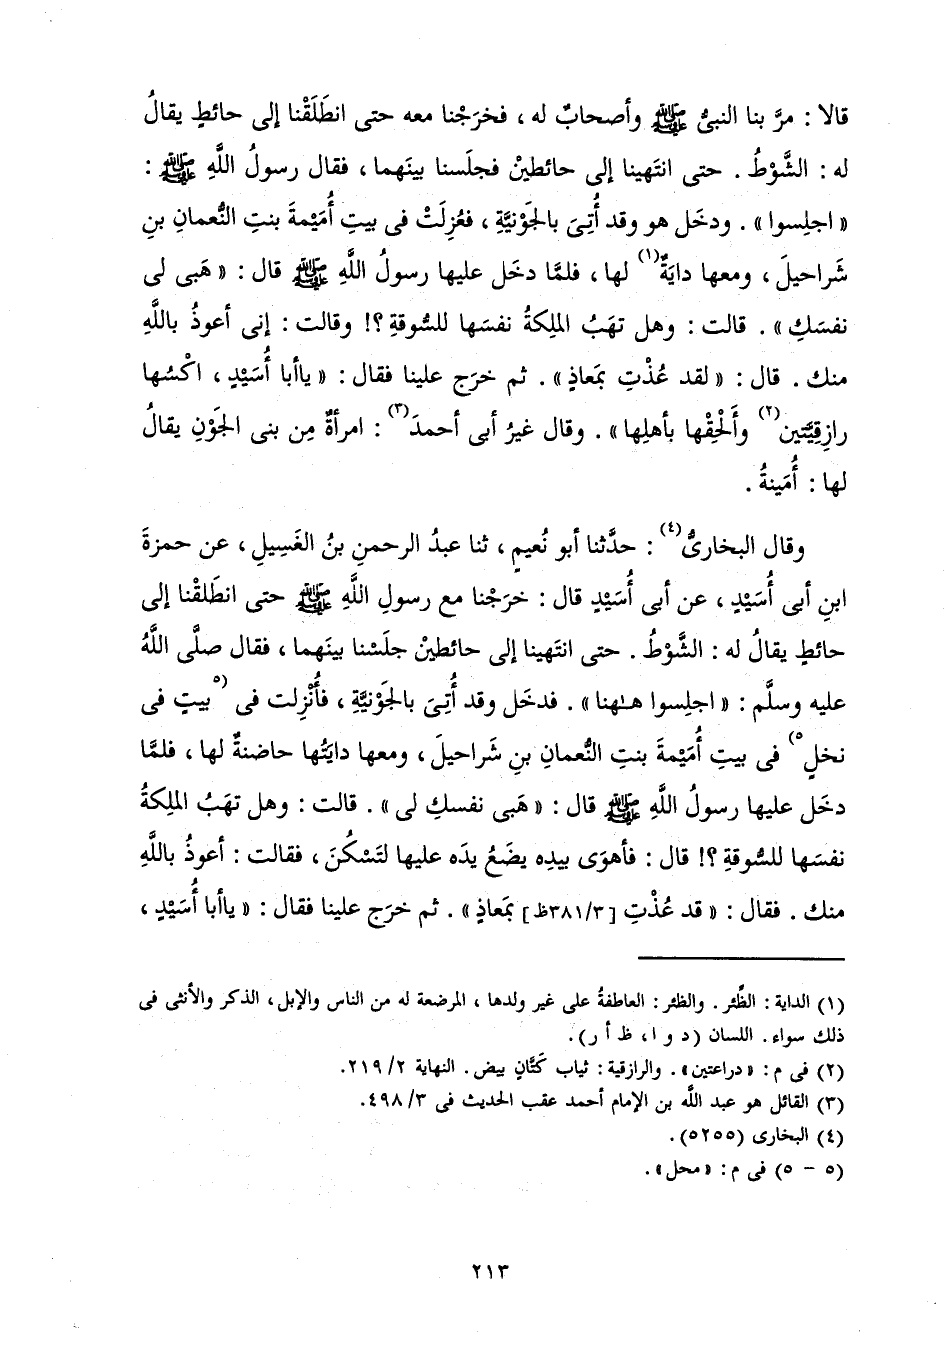 قالا : مرَّ بنا النبىُّ ﷺ وأصحابٌ له ، فخرَجْنا معه حتى انطَلَقْنا إلى حائطٍ يقالُ
له : الشَّوْطُ . حتى انتَهينا إلى حائطينْ فجلَسنا بينَهما ، فقال رسولُ اللَّهِ ﷺ :
« اجلِسوا » . ودخَل هو وقد أُتِىَ بالجَوْنيَّةِ ، فعُزِلَتْ فى بيتِ أُمَيْمةَ بنتِ النُّعمانِ بنِ
شَراحيلَ ، ومعها دايَةٌ(١) لها ، فلمَّا دخَل عليها رسولُ اللَّهِ ﷺ قال : « هَبى لى
نفسَكِ » . قالت : وهل تهَبُ الملِكةُ نفسَها للسُّوقةِ ؟! وقالت : إنى أعوذُ باللَّهِ
منك . قال : « لقد عُذْتِ بمَعاذٍ » . ثم خرَج علينا فقال : « ياأبا أُسَيْدٍ ، اكْسُها
رازِقِيَّتين(٢) وأَلْحِقْها بأهلِها » . وقال غيرُ أبى أحمدَ(٣) : امرأةٌ مِن بنى الجَوْنِ يقالُ
لها : أُمَينةُ .
وقال البخارىُّ(٤) : حدَّثنا أبو نُعيمٍ ، ثنا عبدُ الرحمنِ بنُ الغَسِيلِ ، عن حمزةَ
ابنِ أبى أُسَيْدٍ ، عن أبى أُسَيْدٍ قال : خرَجْنا مع رسولِ اللَّهِ ﷺ حتى انطَلقْنا إلى
حائطٍ يقالُ له : الشَّوْطُ . حتى انتَهينا إلى حائطينْ جلَسْنا بينَهما ، فقال صلَّى اللَّهُ
عليه وسلَّم : « اجلِسوا هـٰهنا » . فدخَل وقد أُتِىَ بالجَوْنيَّةِ ، فأُنْزِلت فى (٥بيتٍ فى
نخلٍ٥) فى بيتِ أُمَيْمةَ بنتِ النُّعمانِ بنِ شَراحيلَ ، ومعها دايَتُها حاضنةٌ لها ، فلمَّا
دخَل عليها رسولُ اللَّهِ ﷺ قال : « هَبى نفسكِ لى » . قالت : وهل تهَبُ الملِكةُ
نفسَها للسُّوقةِ ؟! قال : فأهوَى بيدِه يضَعُ يدَه عليها لتَسْكُنَ ، فقالت : أعوذُ باللَّهِ
منك . فقال : « قد عُذْتِ [٣/ ٣٨١ظ] بمَعاذٍ » . ثم خرَج علينا فقال : « ياأبا أُسَيْدٍ ،
(١) الداية : الظِّئر . والظئر : العاطفةُ على غير ولدها ، المرضعة له من الناس والإبل ، الذكر والأنثى فى
ذلك سواء . اللسان (د و ا ، ظ أ ر) .
(٢) فى م : «دراعتين» . والرازقية : ثياب كَتَّانٍ بيض . النهاية ٢/ ٢١٩.
(٣) القائل هو عبد اللَّه بن الإمام أحمد عقب الحديث فى ٣/ ٤٩٨.
(٤) البخارى (٥٢٥٥) .
(٥ - ٥) فى م : «محل» .
٢١٣